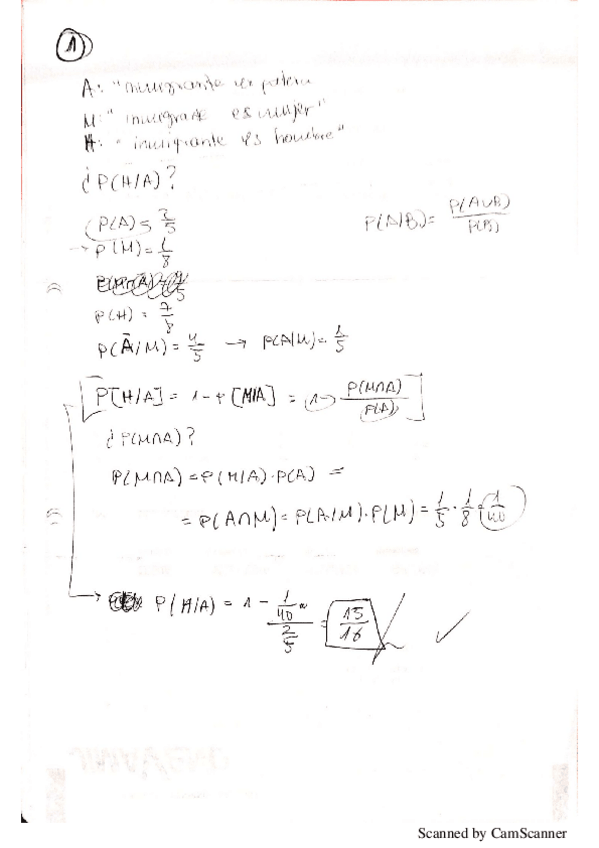 1
A: "inmigrante es patera
M: "inmigrante es mujer"
H: " inmigrante es hombre"
¿P(H/A)?
P(A) = 2/5
P(A/B) = P(A∪B)/P(B)
→ P(M) = 1/8
P(H) = 7/8
P(Ā/M) = 4/5 → P(A/M) = 1/5
P[H/A] = 1 - P[M/A] = 1 - P(M∩A)/P(A)
¿P(M∩A)?
P(M∩A) = P(M/A) · P(A) =
= P(A∩M) = P(A/M) · P(M) = 1/5 · 1/8 = 1/40
P(H/A) = 1 - (1/40)/(2/5) = 15/16
Scanned by CamScanner